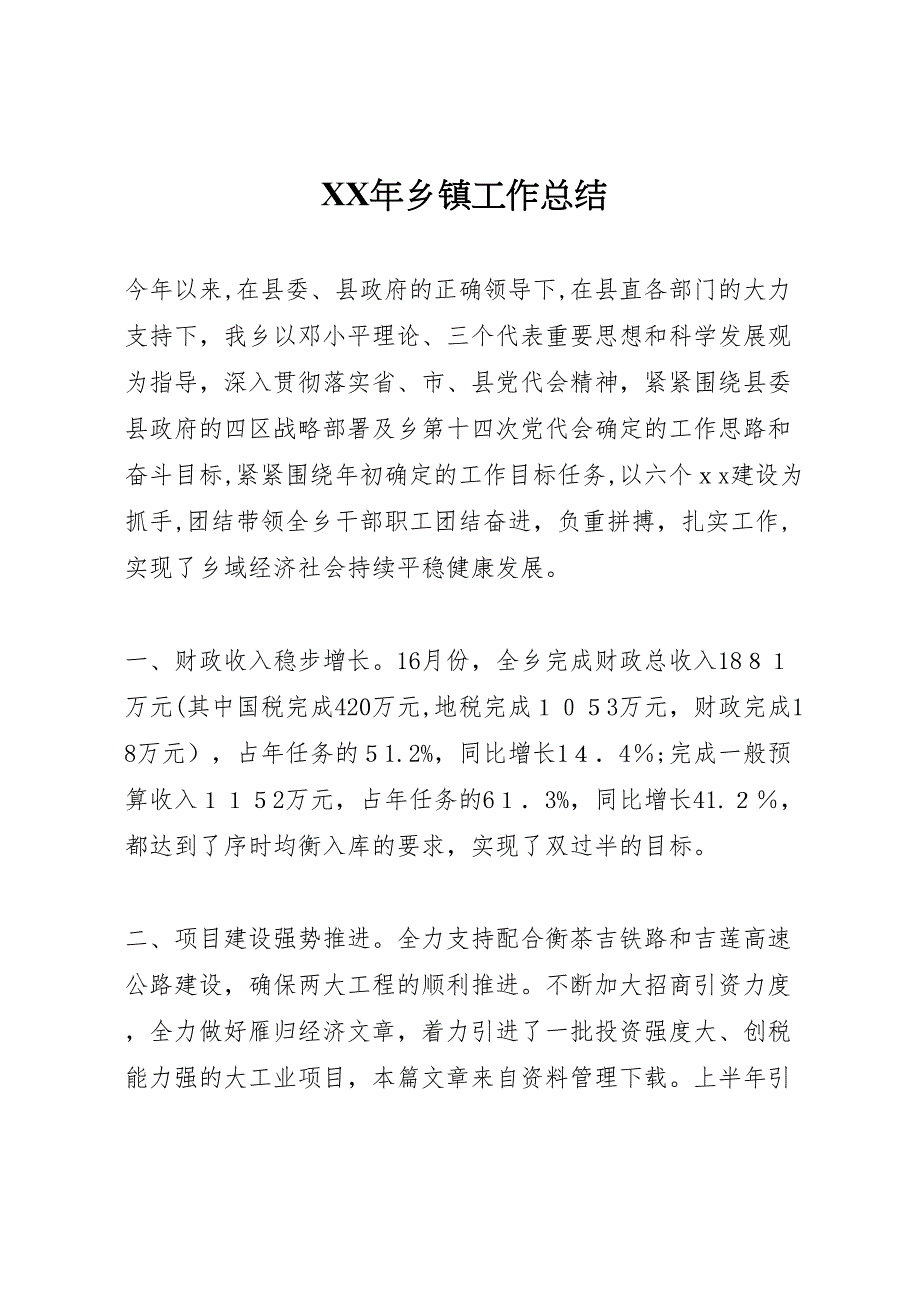 XX年乡镇工作总结
今年以来,在县委、县政府的正确领导下,在县直各部门的大力
支持下，我乡以邓小平理论、三个代表重要思想和科学发展观
为指导，深入贯彻落实省、市、县党代会精神，紧紧围绕县委
县政府的四区战略部署及乡第十四次党代会确定的工作思路和
奋斗目标,紧紧围绕年初确定的工作目标任务,以六个ｘx建设为
抓手,团结带领全乡干部职工团结奋进，负重拼搏，扎实工作,
实现了乡域经济社会持续平稳健康发展。
一、财政收入稳步增长。16月份，全乡完成财政总收入18８１
万元(其中国税完成420万元,地税完成１０５3万元，财政完成1
8万元），占年任务的５1.2%，同比增长1４．4％;完成一般预
算收入１１５2万元，占年任务的6１．3%，同比增长41.２％，
都达到了序时均衡入库的要求，实现了双过半的目标。
二、项目建设强势推进。全力支持配合衡茶吉铁路和吉莲高速
公路建设，确保两大工程的顺利推进。不断加大招商引资力度
，全力做好雁归经济文章，着力引进了一批投资强度大、创税
能力强的大工业项目，本篇文章来自资料管理下载。上半年引